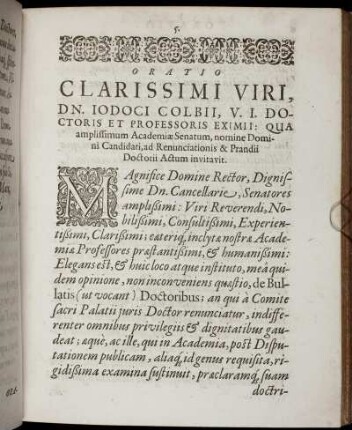 5.
ORATIO
CLARISSIMI VIRI,
DN. IODOCI COLBII, V. I. DO-
CTORIS ET PROFESSORIS EXIMII: QUA
amplissimum Academiæ Senatum, nomine Domi-
ni Candidati, ad Renunciationis & Prandii
Doctorii Actum invitavit.
MAgnifice Domine Rector, Dignis-
sime Dn. Cancellarie, Senatores
amplissimi: Viri Reverendi, No-
bilissimi, Consultissimi, Experien-
tissimi, Clarissimi: cæteriq́; inclytæ nostræ Acade-
miæ Professores præstantissimi, & humanissimi:
Elegans est, & huic loco atque instituto, meâ qui-
dem opinione, non inconveniens quæstio, de Bul-
latis (ut vocant) Doctoribus: an qui à Comite
sacri Palatii juris Doctor renunciatur, indiffe-
renter omnibus privilegiis & dignitatibus gau-
deat; æquè, ac ille, qui in Academia, post Dispu-
tationem publicam, aliaq́; id genus requisita, ri-
gidissima examina sustinuit, præclaramq́; suam
doctri-